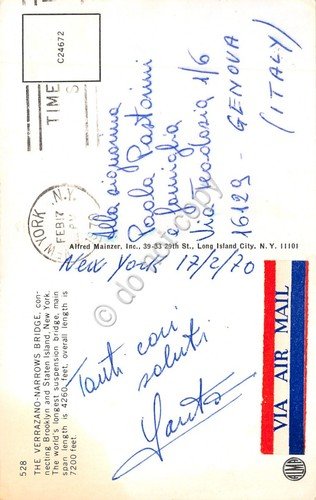 C24672
NEW YORK, N.Y.
FEB 17
PM
1970
TIME
Alla signorina
Paola Pastorini
e famiglia
Via Teodosia 1/6
16129 - GENOVA
(ITALY)
Alfred Mainzer, Inc., 39-33 29th St., Long Island City, N. Y. 11101
New York 17/2/70
Tanti cari
saluti
VIA AIR MAIL
528
THE VERRAZANO-NARROWS BRIDGE, con-
necting Brooklyn and Staten Island, New York.
The world's longest suspension bridge, main
span length is 4260 feet, overall length is
7200 feet.